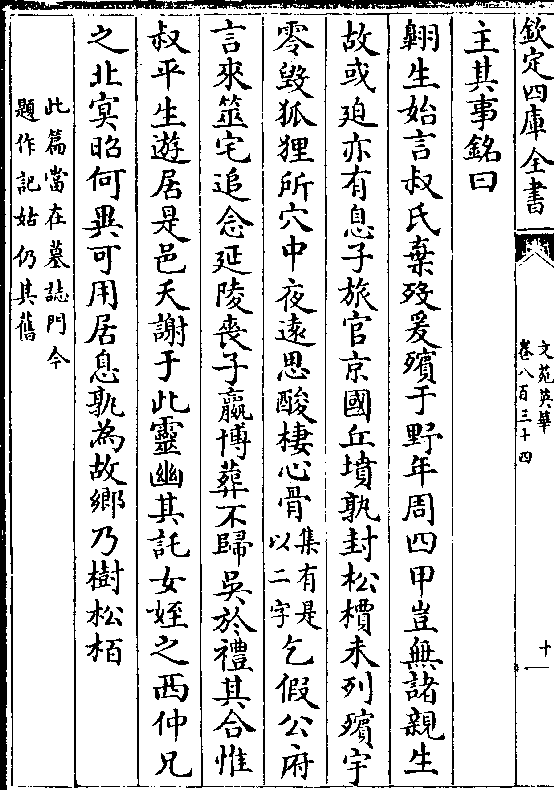 欽定四庫全書
文苑英華
卷八百三十四
十
主其事銘曰
翶生始言叔氏棄歿爰殯于野年周四甲豈無諸親生
故或廹亦有息子旅官京國丘墳孰封松檟未列殯宇
零毀狐狸所穴中夜遠思酸棲心骨集有是以二字乞假公府
言來筮宅追念延陵喪子嬴博葬不歸吳於禮其合惟
叔平生遊居是邑天謝于此靈幽其託女姪之西仲兄
之北㝠昭何異可用居息孰為故鄉乃樹松栢
此篇當在墓誌門今
題作記姑仍其舊